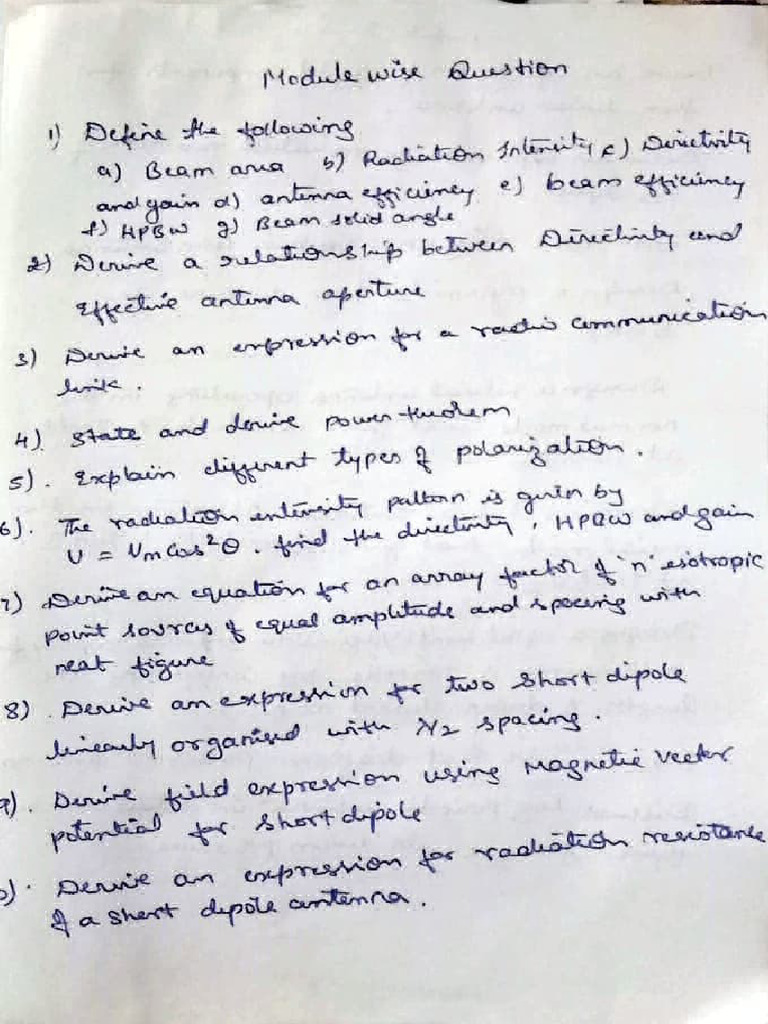 Module wise Question
1) Define the following
a) Beam area b) Radiation Intensity c) Directivity
and gain d) antenna efficiency e) beam efficiency
f) HPBW g) Beam solid angle
2) Derive a relationship between Directivity and
Effective antenna aperture
3) Derive an expression for a radio communication
link.
4) State and derive power theorem
5). Explain different types of polarization.
6). The radiation intensity pattern is given by
U = Um Cos²θ. find the directivity, HPBW and gain
7) Derive an equation for an array factor of 'n' isotropic
point sources of equal amplitude and spacing with
neat figure
8) Derive an expression for two short dipole
linearly organised with λ/2 spacing.
9). Derive field expression using Magnetic vector
potential for short dipole
0). Derive an expression for radiation resistance
of a short dipole antenna.